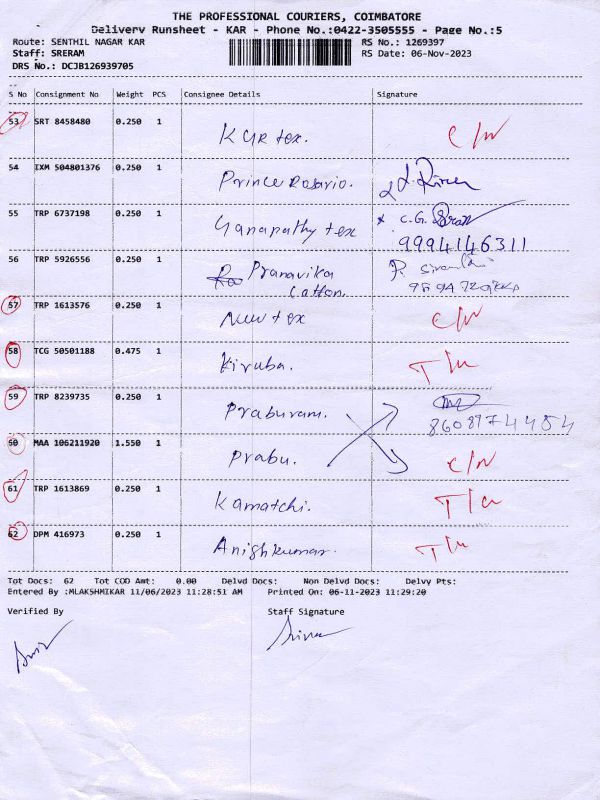 THE PROFESSIONAL COURIERS, COIMBATORE
Delivery Runsheet - KAR - Phone No.:0422-3505555 - Page No.:5
Route: SENTHIL NAGAR KAR RS No.: 1269397
Staff: SRERAM RS Date: 06-Nov-2023
DRS No.: DCJB126939705
S No Consignment No Weight PCS Consignee Details Signature
53 SRT 8458480 0.250 1 KGR tex. C/N
54 IXM 504801376 0.250 1 Prince Rosario.
55 TRP 6737198 0.250 1 Ganapathy tex C.G.
9994146311
56 TRP 5926556 0.250 1 Pranavika P.
Cotton.
57 TRP 1613576 0.250 1 New tex C/N
58 TCG 50501188 0.475 1 Kiruba.
59 TRP 8239735 0.250 1 Praburam.
8608974454
60 MAA 106211920 1.550 1 Prabu. C/N
61 TRP 1613869 0.250 1 Kamatchi.
62 DPM 416973 0.250 1 Anishkumar.
Tot Docs: 62 Tot COD Amt: 0.00 Delvd Docs: Non Delvd Docs: Delvy Pts:
Entered By :MLAKSHMIKAR 11/06/2023 11:28:51 AM Printed On: 06-11-2023 11:29:20
Verified By Staff Signature